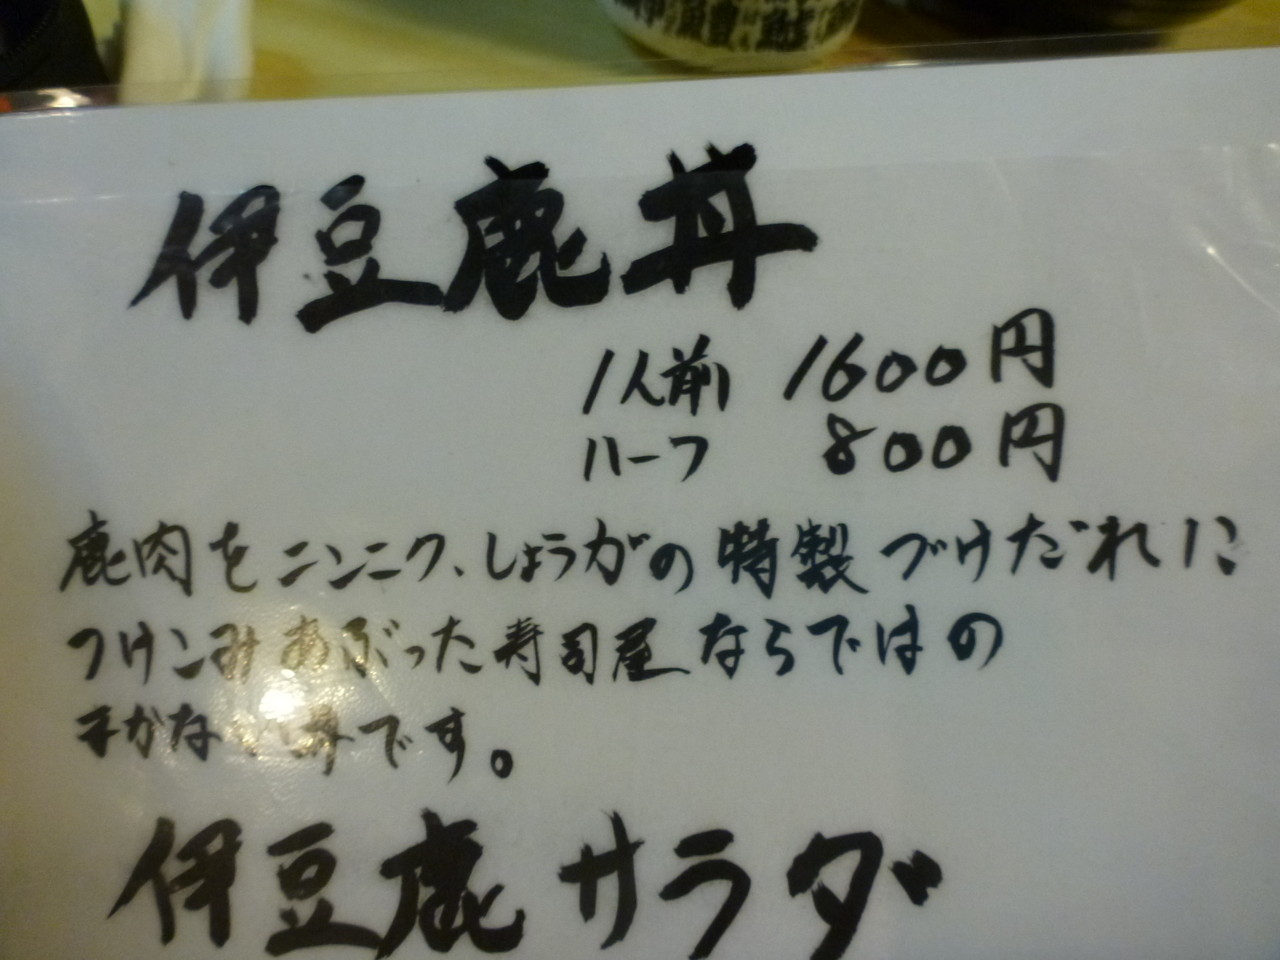 伊豆鹿丼
1人前 1600円
ハーフ 800円
鹿肉をニンニク、しょうがの特製づけだれに
つけこみあぶった寿司屋ならではの
さかな丼です。
伊豆鹿サラダ